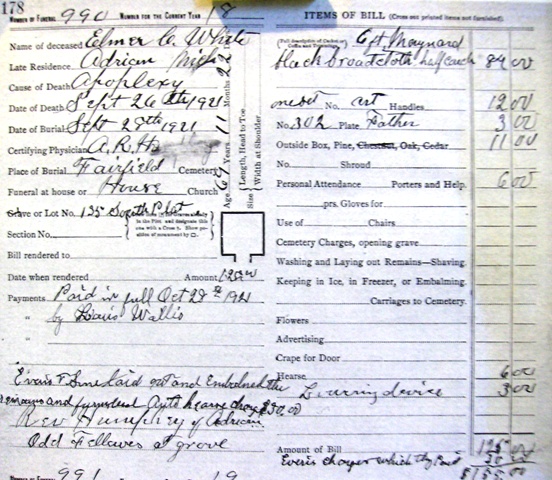 178
Number of Funeral 990 Number for the Current Year 18
Name of deceased Elmer C. White
Late Residence, Adrian Mich
Cause of Death Apoplexy
Date of Death Sept 26th 1921
Date of Burial Sept 28th 1921
Certifying Physician A. R. H
Place of Burial Fairfield Cemetery
Funeral at house or House Church
Grave or Lot No. 135 South Plot
Section No.
Bill rendered to
Date when rendered Amount, 125.00
Payments Paid in full Oct 29th 1921
" by Louis Wallis
"
"
laid out and Embalmed the
remains and furnished Auto hearse charge $30.00
Rev Humphrey of Adrian
Odd Fellows at grove
Number of Funeral 991 19
Age 69 Years 11 Months
Size { Length, Head to Toe
Width at Shoulder
ITEMS OF BILL (Cross out printed items not furnished).
6 ft Maynard
black broadcloth half couch 84 00
one set No. art Handles, 12 00
No. 302 Plate Father 3 00
Outside Box, Pine, Chestnut, Oak, Cedar 11 00
No. Shroud
Personal Attendance Porters and Help, 6 00
prs. Gloves for
Use of Chairs
Cemetery Charges, opening grave
Washing and Laying out Remains—Shaving.
Keeping in Ice, in Freezer, or Embalming.
Carriages to Cemetery.
Flowers
Advertising
Crape for Door
Hearse 6 00
Lowering device 3 00
Amount of Bill 125 00
Evans charges which they Paid 30 00
$155.00